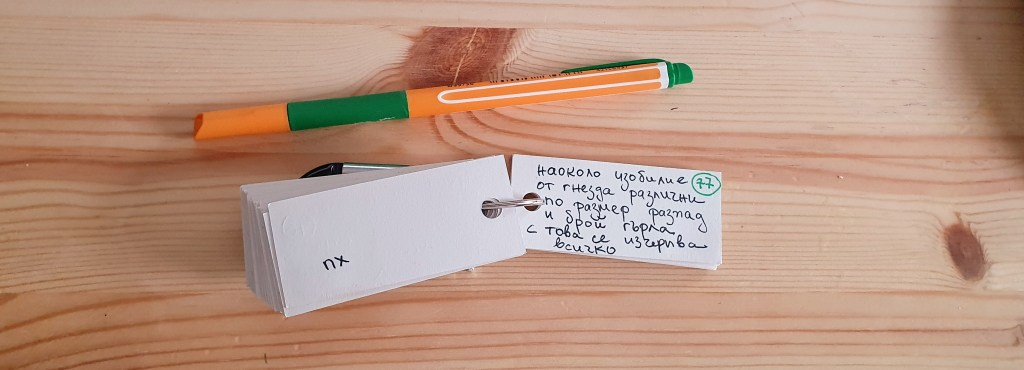 пх
наоколо изобилие 77
от гнезда различни
по размер разпад
и брой гърла
с това се изчерпва
всичко